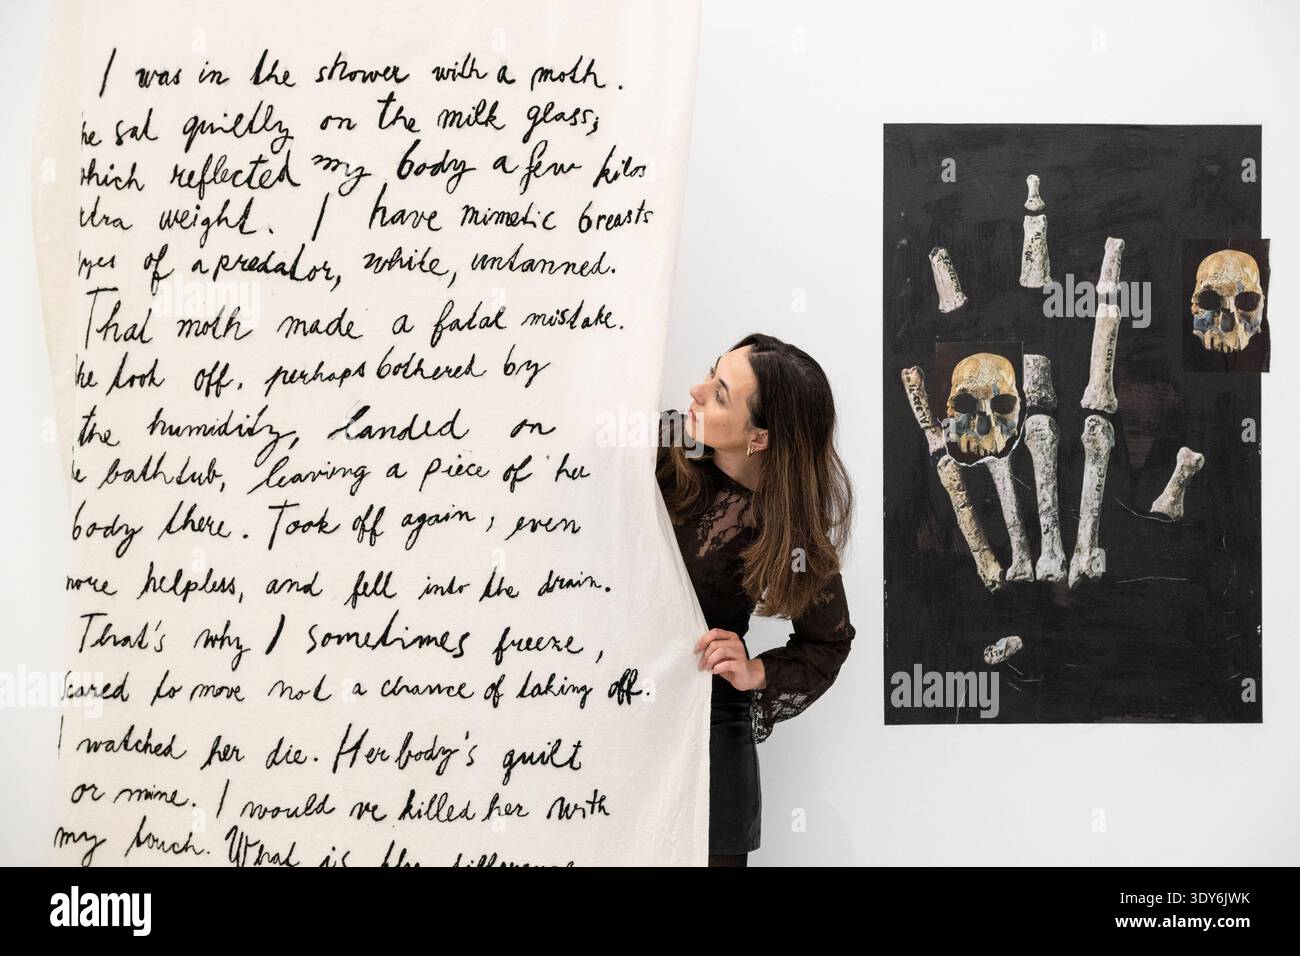 I was in the shower with a moth.
he sat quietly on the milk glass,
which reflected my body a few kilos
xtra weight. I have mimetic breasts
yes of a predator, white, untanned.
That moth made a fatal mistake.
he took off, perhaps bothered by
the humidity, landed on
e bathtub, leaving a piece of her
body there. Took off again, even
more helpless, and fell into the drain.
That's why I sometimes freeze,
scared to move not a chance of taking off.
I watched her die. Her body's guilt
or mine. I would've killed her with
my touch. What is the difference
alamy
Image ID: 3DY6JWK
www.alamy.com